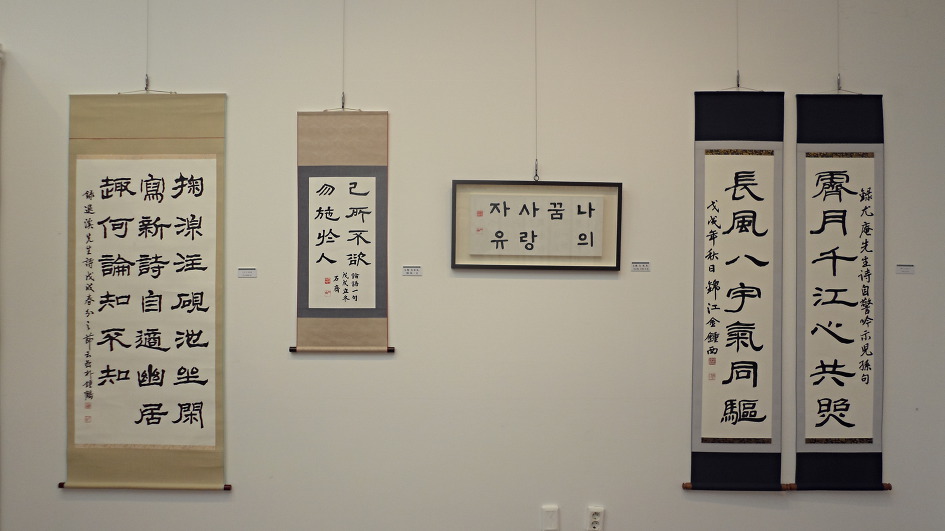 掬注硯池坐閑
寫新詩自適幽居
趣何論知不知
錄退溪先生詩戊戌春分之節
己所不欲
勿施於人
論語一句
戊戌立冬
나의
꿈
사랑
자유
錄尤庵先生詩自警吟示児孫句
霽月千江心共照
長風八宇氣同驅
戊戌年秋日錦江金鍾西